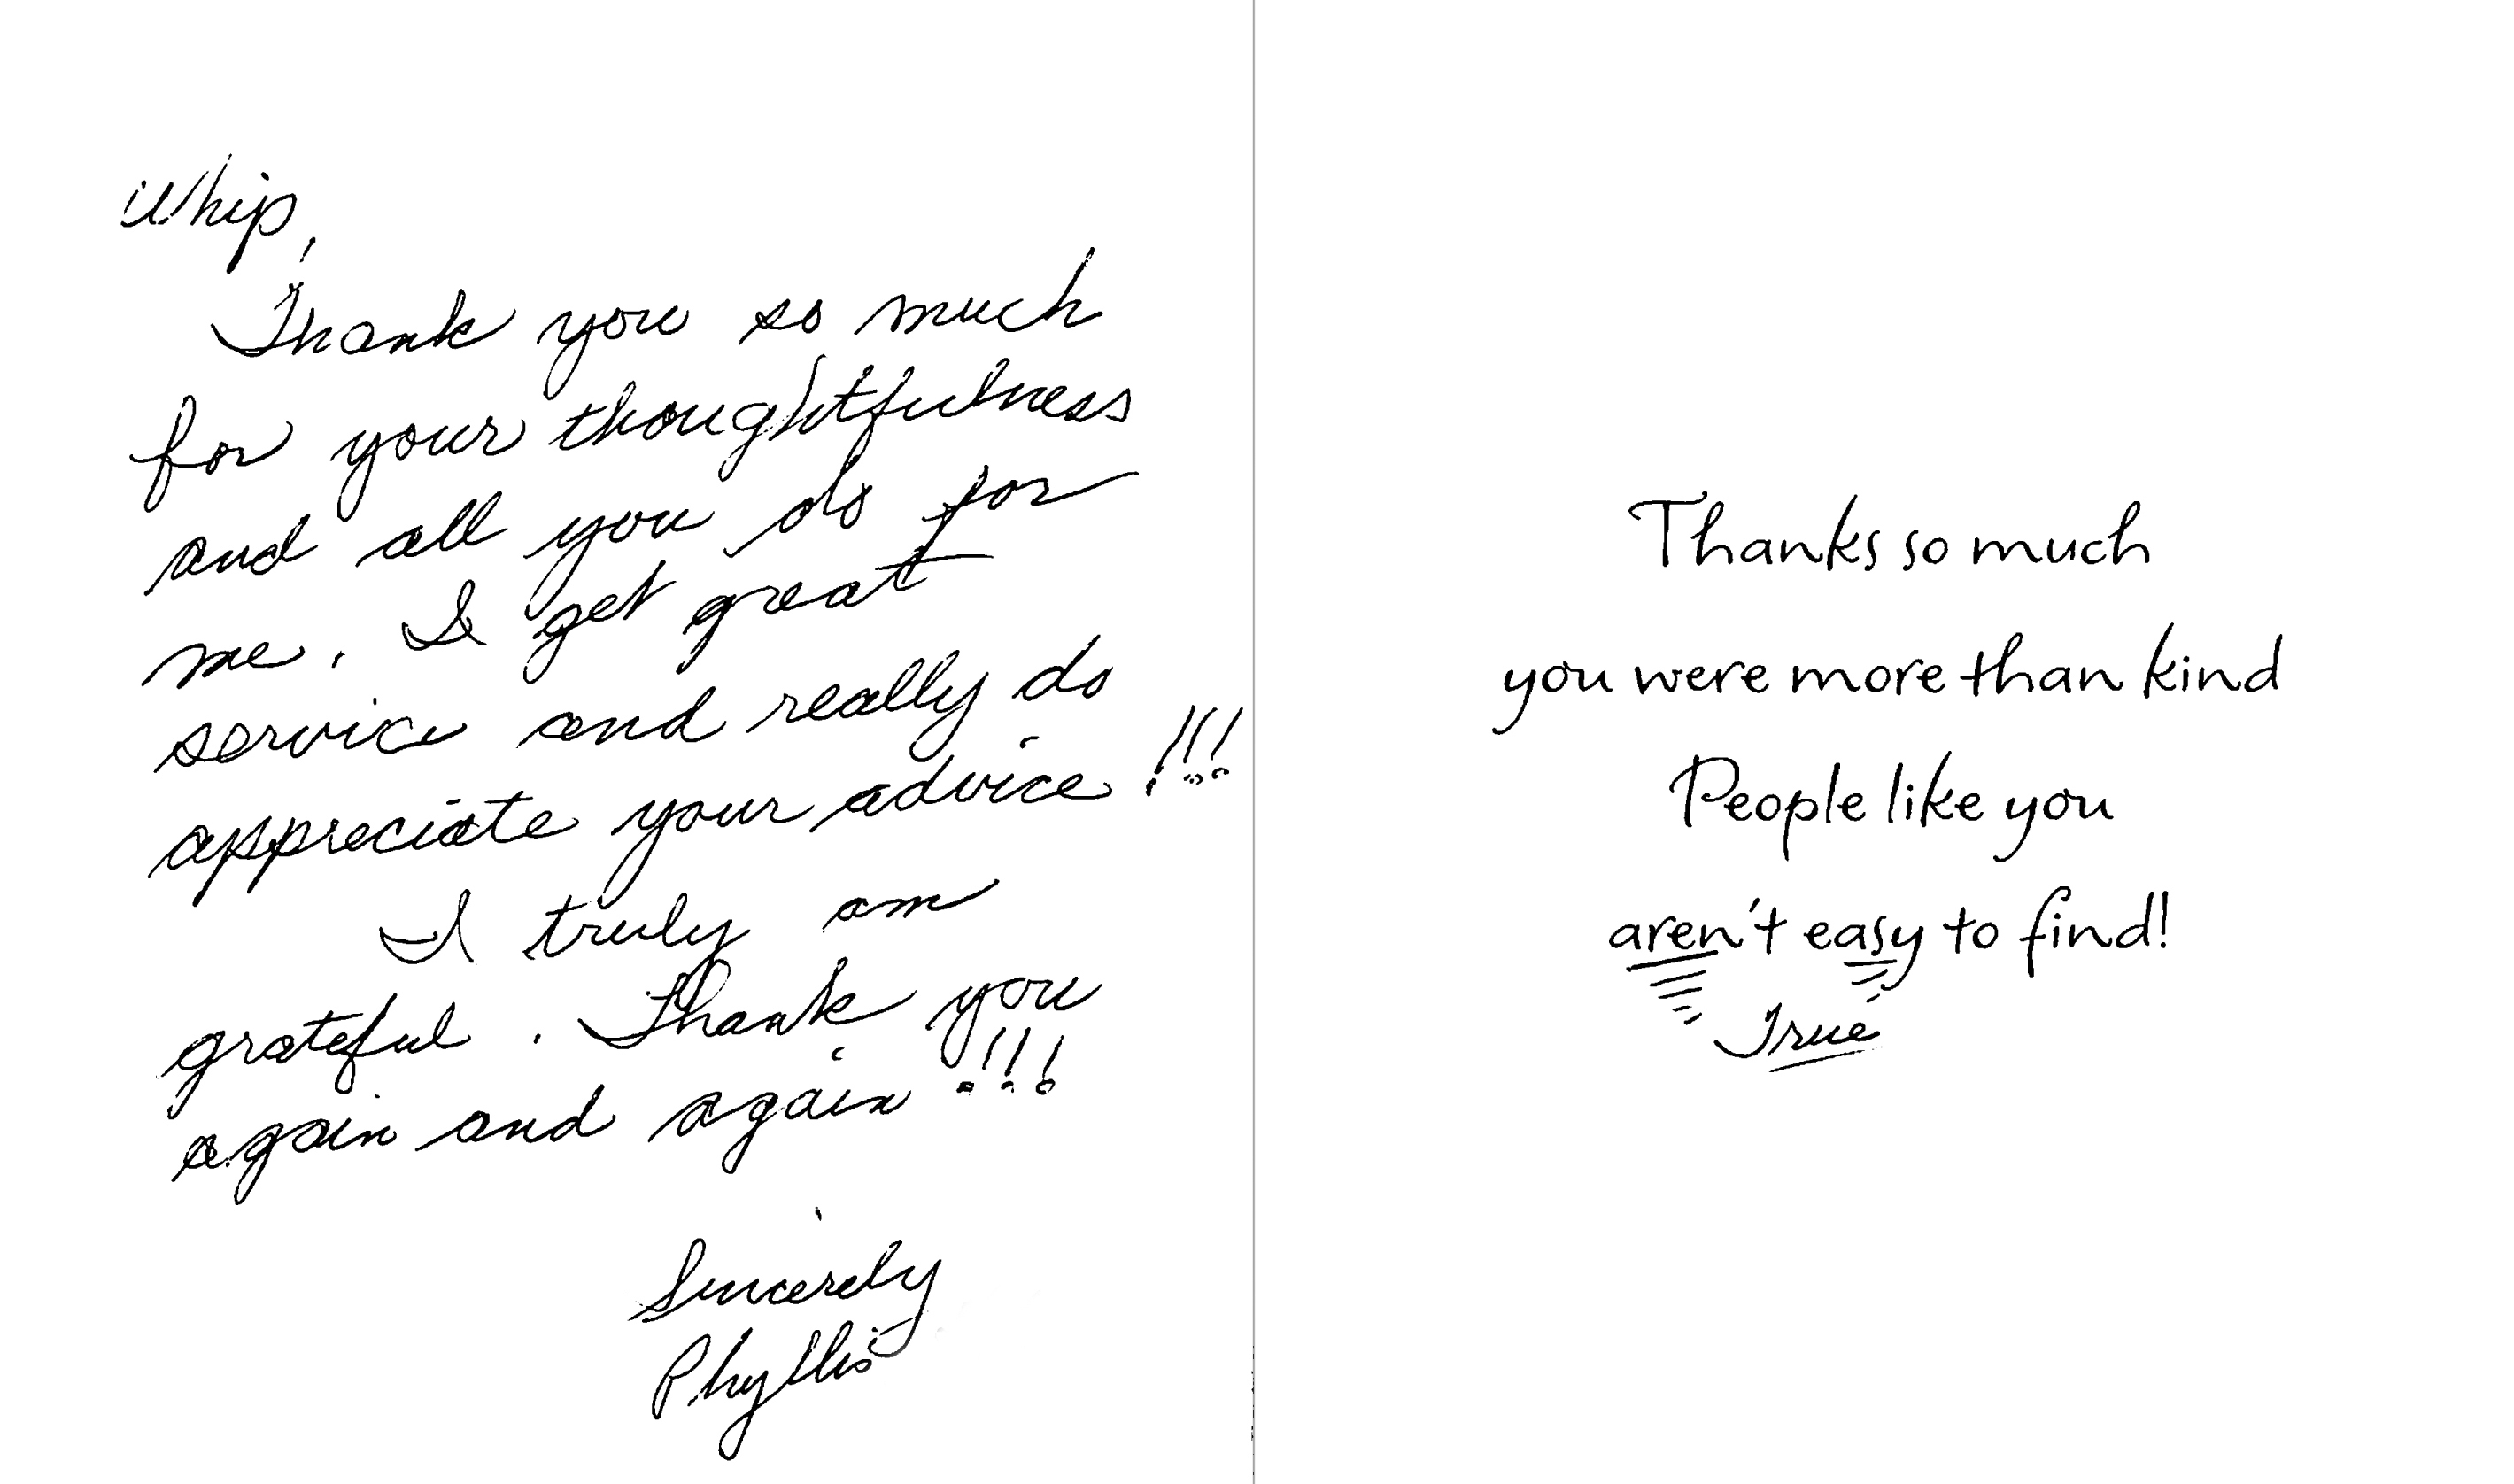 Whip,
Thank you so much
for your thoughtfulness
and all you do for
me. I get great
service and really do
appreciate your advice!!!
I truly am
grateful. Thank you
again and again!!!
Sincerely
Phyllis
Thanks so much
you were more than kind
People like you
aren't easy to find!
True